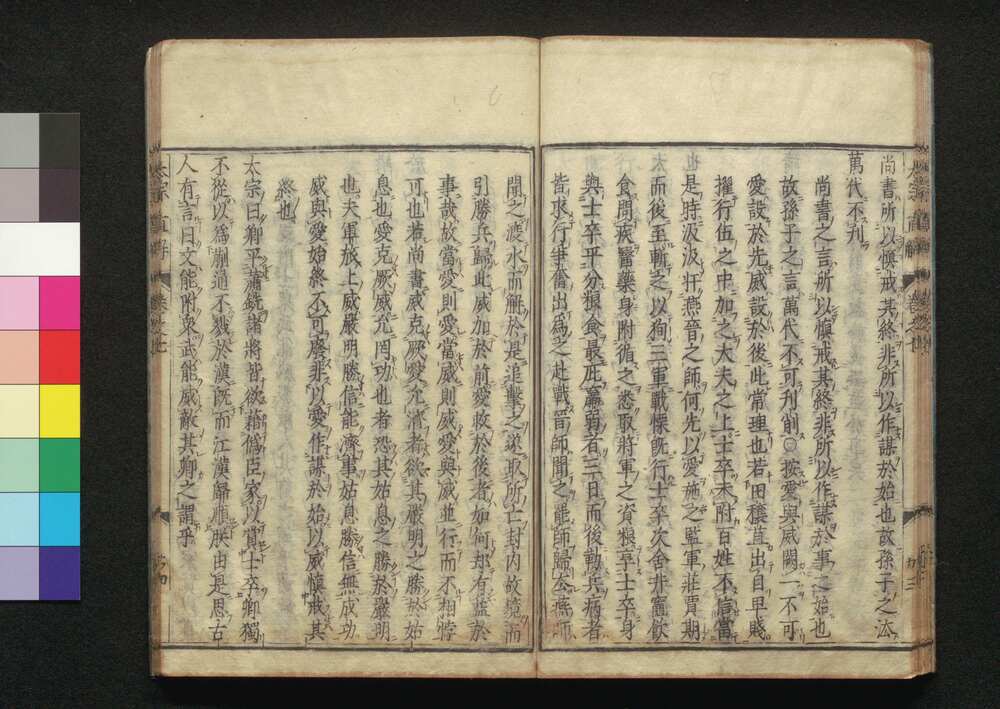 尚書所以愼戒其終非所以作謀於始也故孫子之法
萬代不刋
尚書之言所以愼戒其終非所以作謀於事之始也
故孫子之言萬代不可刋削○按愛與威闕一不可
愛設於先威設於後此常理也若田穰苴出自早賤
擢行伍之中加之大夫之上士卒未附百姓不信當
是時汲汲扞燕晉之師何先以愛施之監軍莊賈期
而後至斬之以狥三軍戰慄既行士卒次舍井竈飲
食問疾醫藥身附循之悉取將軍之資粮享士卒身
與士卒平分粮食最庇羸弱者三日而後勒兵病者
皆求行爭奮出爲之赴戰晉師聞之罷師歸去燕師
聞之渡水而解於是追擊之遂取所亡封內故境而
引勝兵歸此威加於前愛收於後者如何却有益於
事哉故當愛則愛當威則威愛與威並行而不相悖
可也若尚書威克厥愛允濟者欲其嚴明之勝於姑
息也愛克厥威允罔功也者恐其姑息之勝於嚴明
也夫軍旅上威嚴明勝信能濟事姑息勝信無成功
威與愛始終不可廢非以愛作謀於始以威愼戒其
終也
太宗曰卿平蕭銑諸將皆欲藉僞臣家以賞士卒卿獨
不從以爲蒯通不戮於漢既而江漢歸順朕由是思古
人有言曰文能附衆武能威敵其卿之謂乎